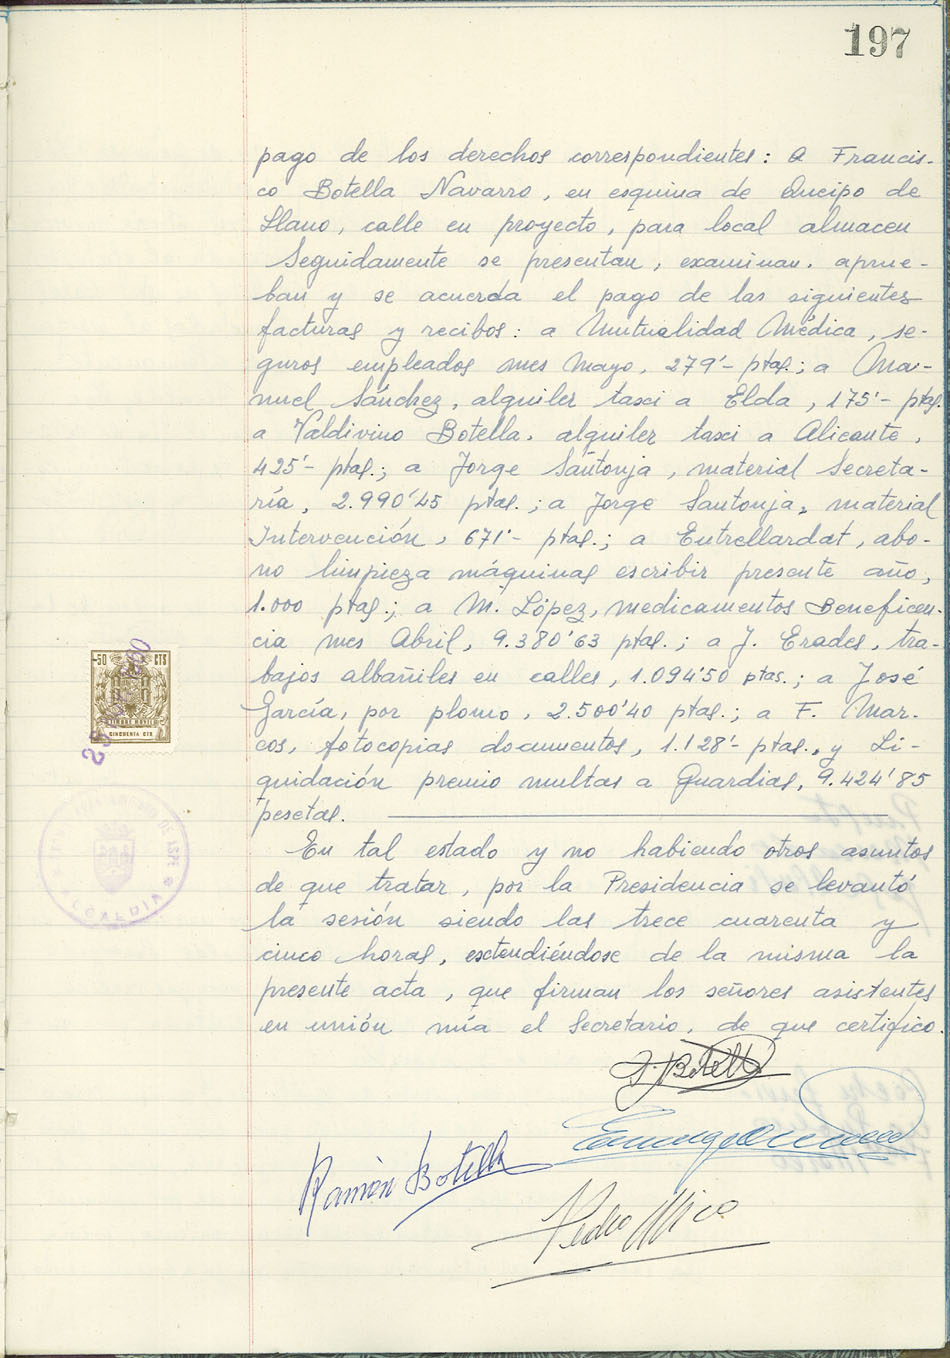 197
pago de los derechos correspondientes: A Francis-
co Botella Navarro, en esquina de Queipo de
Llano, calle en proyecto, para local almacen
Seguidamente se presentan, examinan, aprue-
ban y se acuerda el pago de las siguientes
facturas y recibos: a Mutualidad Médica, se-
guros empleados mes Mayo, 279'- ptas.; a Ma-
nuel Sánchez, alquiler taxi a Elda, 175'- ptas.
a Valdivino Botella, alquiler taxi a Alicante,
425'- ptas.; a Jorge Santonja, material Secreta-
ría, 2.990'45 ptas.; a Jorge Santonja, material
Intervención, 671'- ptas.; a Entrellardat, abo-
no limpieza máquinas escribir presente año,
1.000 ptas.; a M. López, medicamentos Beneficen-
cia mes Abril, 9.380'63 ptas.; a J. Erades, tra-
bajos albañiles en calles, 1.094'50 ptas.; a José
García, por plomo, 2.500'40 ptas.; a F. Mar-
cos, fotocopias documentos, 1.128'- ptas., y Li-
quidación premio multas a Guardias, 9.424'85
pesetas.
-50 CTS
CINCUENTA CTS
DE ASPE
ALCALDIA
En tal estado y no habiendo otros asuntos
de que tratar, por la Presidencia se levantó
la sesión siendo las trece cuarenta y
cinco horas, extendiéndose de la misma la
presente acta, que firman los señores asistentes
en unión mía el Secretario, de que certifico.
Botella
Ramón Botella
Pedro Mico